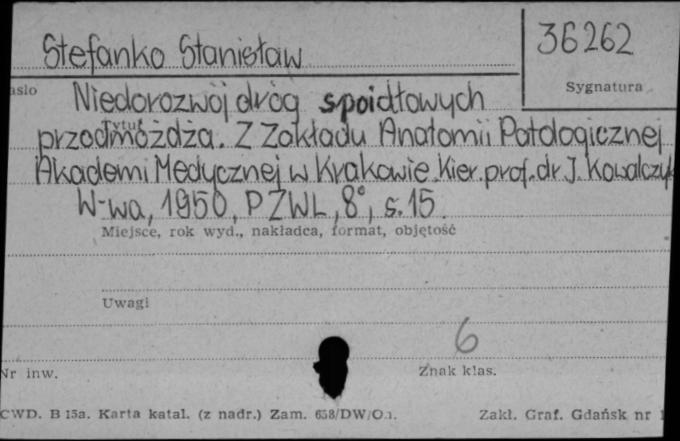 Stefanko Stanisław
36262
Sygnatura
asło
Niedorozwój dróg spoidłowych
Tytuł
przodmóżdża. Z Zakładu Anatomii Patologicznej
Akademi Medycznej w Krakowie. Kier. prof. dr J. Kowalczyk
W-wa, 1950, PZWL, 8°, s. 15
Miejsce, rok wyd., nakładca, format, objętość
Uwagi
6
Nr inw.
Znak klas.
CWD. B 15a. Karta katal. (z nadr.) Zam. 658/DW/O.
Zakł. Graf. Gdańsk nr 1